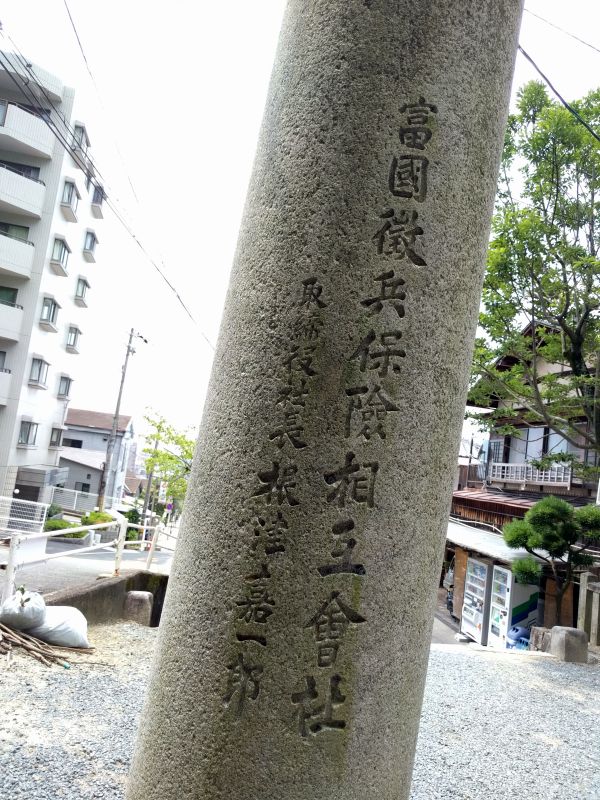 富國徵兵保險相互會社
取締役社長根津嘉一郎